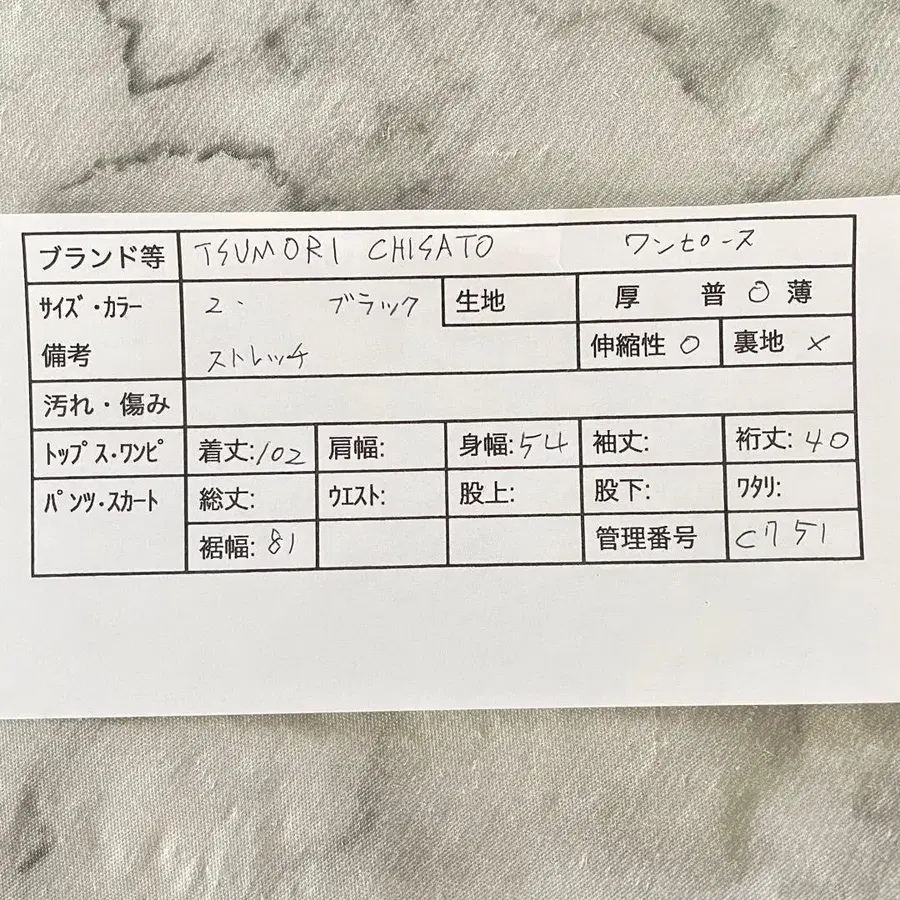 ブランド等 TSUMORI CHISATO ワンピース
サイズ・カラー 2. ブラック 生地 厚 普 〇 薄
備考 ストレッチ 伸縮性 〇 裏地 ×
汚れ・傷み
トップス・ワンピ 着丈:102 肩幅: 身幅:54 袖丈: 裄丈:40
パンツ・スカート 総丈: ウエスト: 股上: 股下: ワタリ:
裾幅:81 管理番号 C751